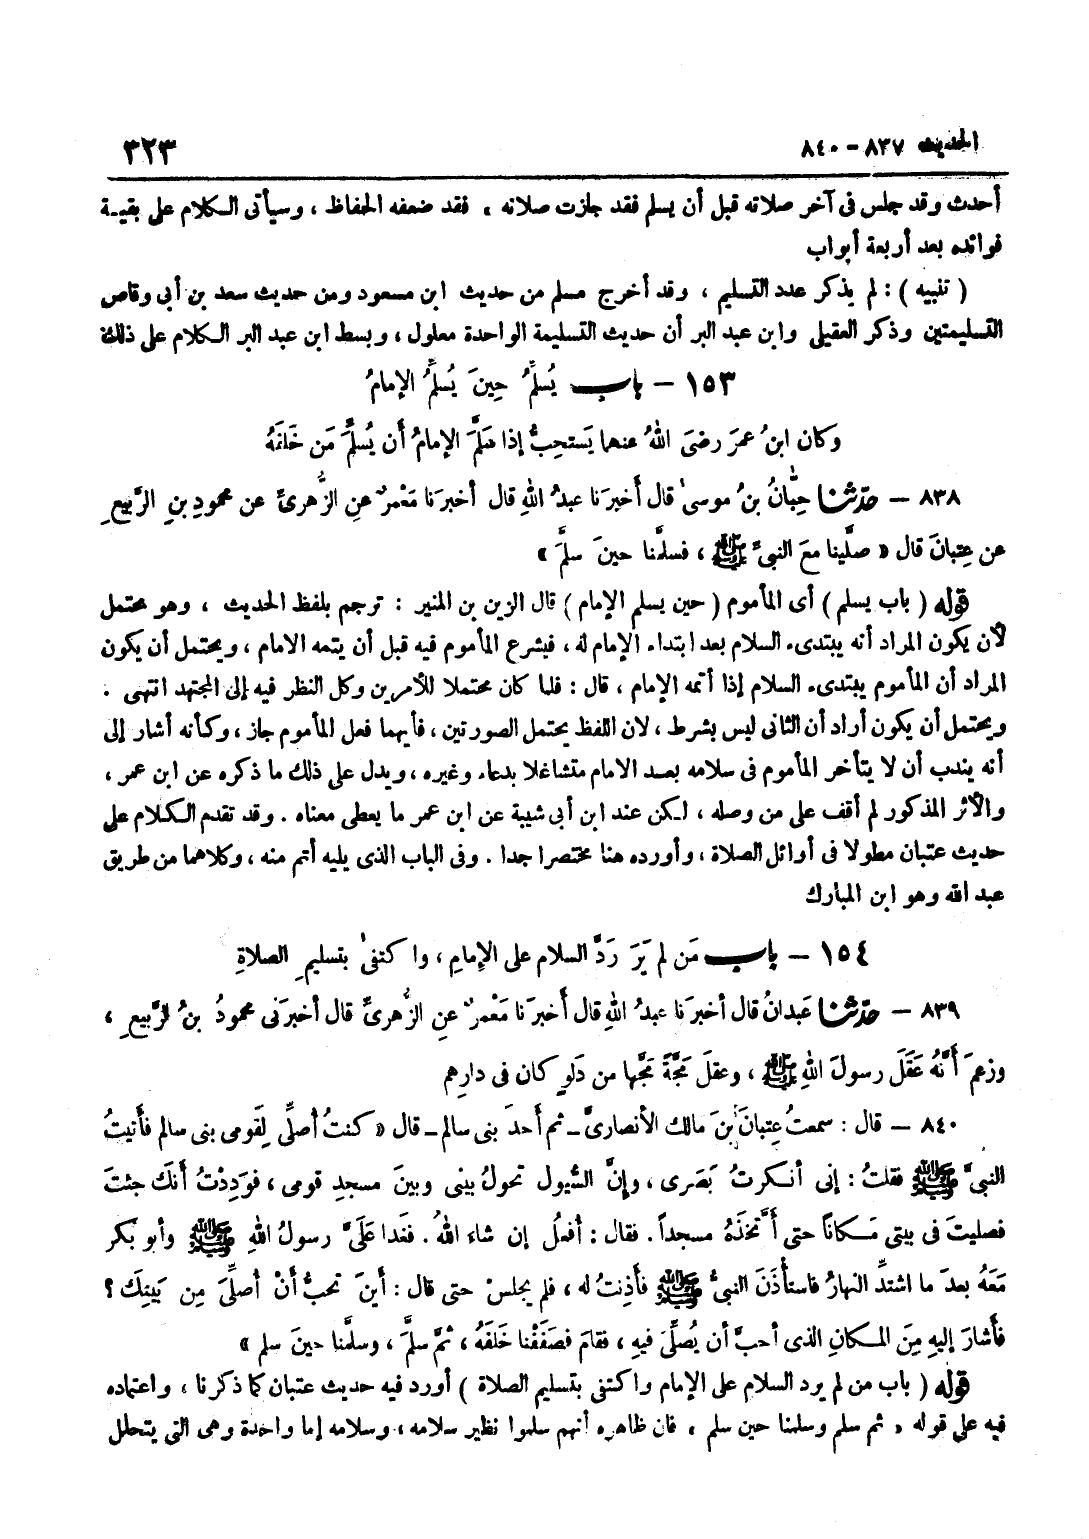 الحديث ٨٣٧ - ٨٤٠ ٣٢٣
أحدث وقد جلس فى آخر صلاته قبل أن يسلم فقد جازت صلاته ، فقد ضعفه الحفاظ ، وسيأتى الكلام على بقية
فوائده بعد أربعة أبواب
( تنبيه ) : لم يذكر عدد التسليم ، وقد أخرج مسلم من حديث ابن مسعود ومن حديث سعد بن أبى وقاص
التسليمتين وذكر العقيلى وابن عبد البر أن حديث التسليمة الواحدة معلول ، وبسط ابن عبد البر الكلام على ذلك
١٥٣ - باب يُسلِّمُ حِينَ يُسلِّمُ الإمامُ
وكان ابنُ عمرَ رضىَ اللهُ عنهما يَستحِبُّ إذا سَلَّمَ الإمامُ أن يُسلِّمَ مَن خَلفَهُ
٨٣٨ - حدّثنا حِبّانُ بنُ موسىٰ قال أخبرَنا عبدُ اللهِ قال أخبرَنا مَعْمرٌ عنِ الزُّهرىِّ عن محمودِ بنِ الرَّبيعِ
عن عِتبانَ قال « صلَّينا معَ النبىِّ ﷺ ، فسلَّمنا حينَ سلَّمَ »
قوله ( باب يسلم ) أى المأموم ( حين يسلم الإمام ) قال الزين بن المنير : ترجم بلفظ الحديث ، وهو محتمل
لأن يكون المراد أنه يبتدىء السلام بعد ابتداء الإمام له ، فيشرع المأموم فيه قبل أن يتمه الامام ، ويحتمل أن يكون
المراد أن المأموم يبتدىء السلام إذا أتمه الإمام ، قال : فلما كان محتملا للأمرين وكل النظر فيه إلى المجتهد انتهى .
ويحتمل أن يكون أراد أن الثانى ليس بشرط ، لان اللفظ يحتمل الصورتين ، فأيهما فعل المأموم جاز ، وكأنه أشار إلى
أنه يندب أن لا يتأخر المأموم فى سلامه بعد الامام متشاغلا بدعاء وغيره ، ويدل على ذلك ما ذكره عن ابن عمر ،
والأثر المذكور لم أقف على من وصله ، لكن عند ابن أبى شيبة عن ابن عمر ما يعطى معناه . وقد تقدم الكلام على
حديث عتبان مطولا فى أوائل الصلاة ، وأورده هنا مختصرا جدا . وفى الباب الذى يليه أتم منه ، وكلاهما من طريق
عبد الله وهو ابن المبارك
١٥٤ - باب مَن لم يَرَ رَدَّ السلام على الإمامِ ، واكتفىٰ بتسليمِ الصلاةِ
٨٣٩ - حدّثنا عَبدانُ قال أخبرَنا عبدُ اللهِ قال أخبرَنا مَعْمرٌ عنِ الزُّهرىِّ قال أخبرَنى محمودُ بنُ الرَّبيعِ ،
وزعمَ أنَّهُ عَقَلَ رسولَ اللهِ ﷺ ، وعقلَ مَجَّةً مَجَّها من دَلوٍ كان فى دارِهم
٨٤٠ - قال : سمعتُ عِتبانَ بنَ مالك الأنصارىَّ - ثم أحدَ بنى سالم - قال « كنتُ أُصلِّى لِقَومى بنى سالم فأتيتُ
النبىَّ ﷺ فقلتُ : إنى أنكرتُ بَصَرى ، وإنَّ السُّيول تحولُ بينى وبينَ مسجدِ قومى ، فوَدِدْتُ أنكَ جئتَ
فصليتَ فى بيتى مَكاناً حتى أتَّخذَهُ مسجداً . فقال : أفعلُ إن شاء اللهُ . فغدا علَىَّ رسولُ اللهِ ﷺ وأبو بكر
مَعَهُ بعدَ ما اشتدَّ النهارُ فاستأذَنَ النبىُّ ﷺ فأَذِنتُ له ، فلم يجلسْ حتى قال : أينَ تحبُّ أنْ أُصلِّىَ مِن بَيتِكَ ؟
فأشارَ إليهِ مِنَ المكانِ الذى أحبَّ أن يُصلِّىَ فيهِ ، فقامَ فصَفَفْنا خَلفَهُ ، ثمَّ سلَّمَ ، وسلَّمنا حينَ سلم »
قوله ( باب من لم يرد السلام على الإمام واكتفى بتسليم الصلاة ) أورد فيه حديث عتبان كما ذكرنا ، واعتماده
فيه على قوله « ثم سلم وسلمنا حين سلم » فان ظاهره أنهم سلموا نظير سلامه ، وسلامه إما واحدة وهى التى يتحلل